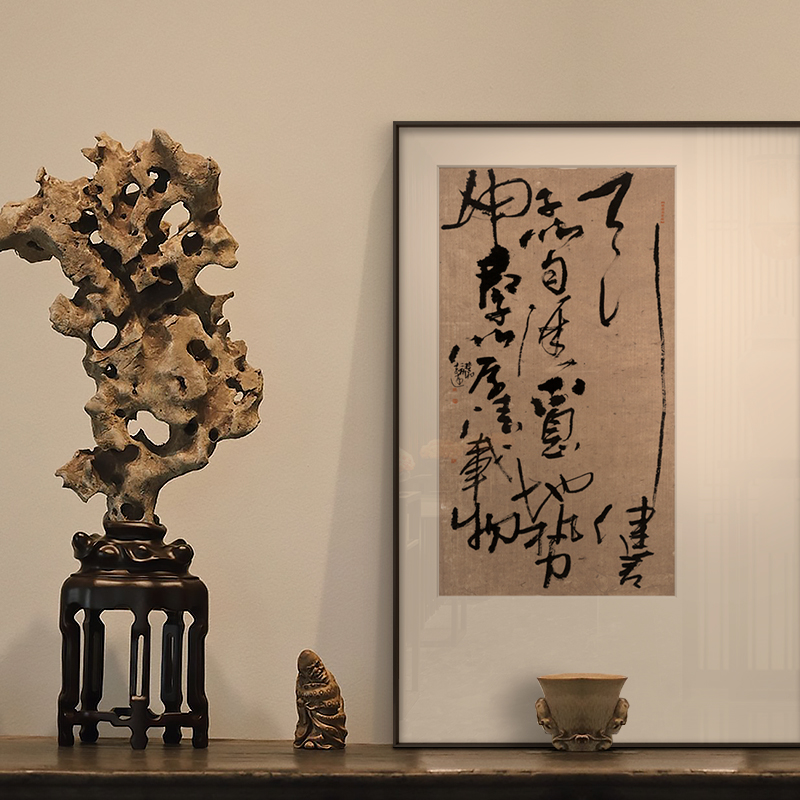 天行健君
子以自强不息地勢
坤君子以厚德載物